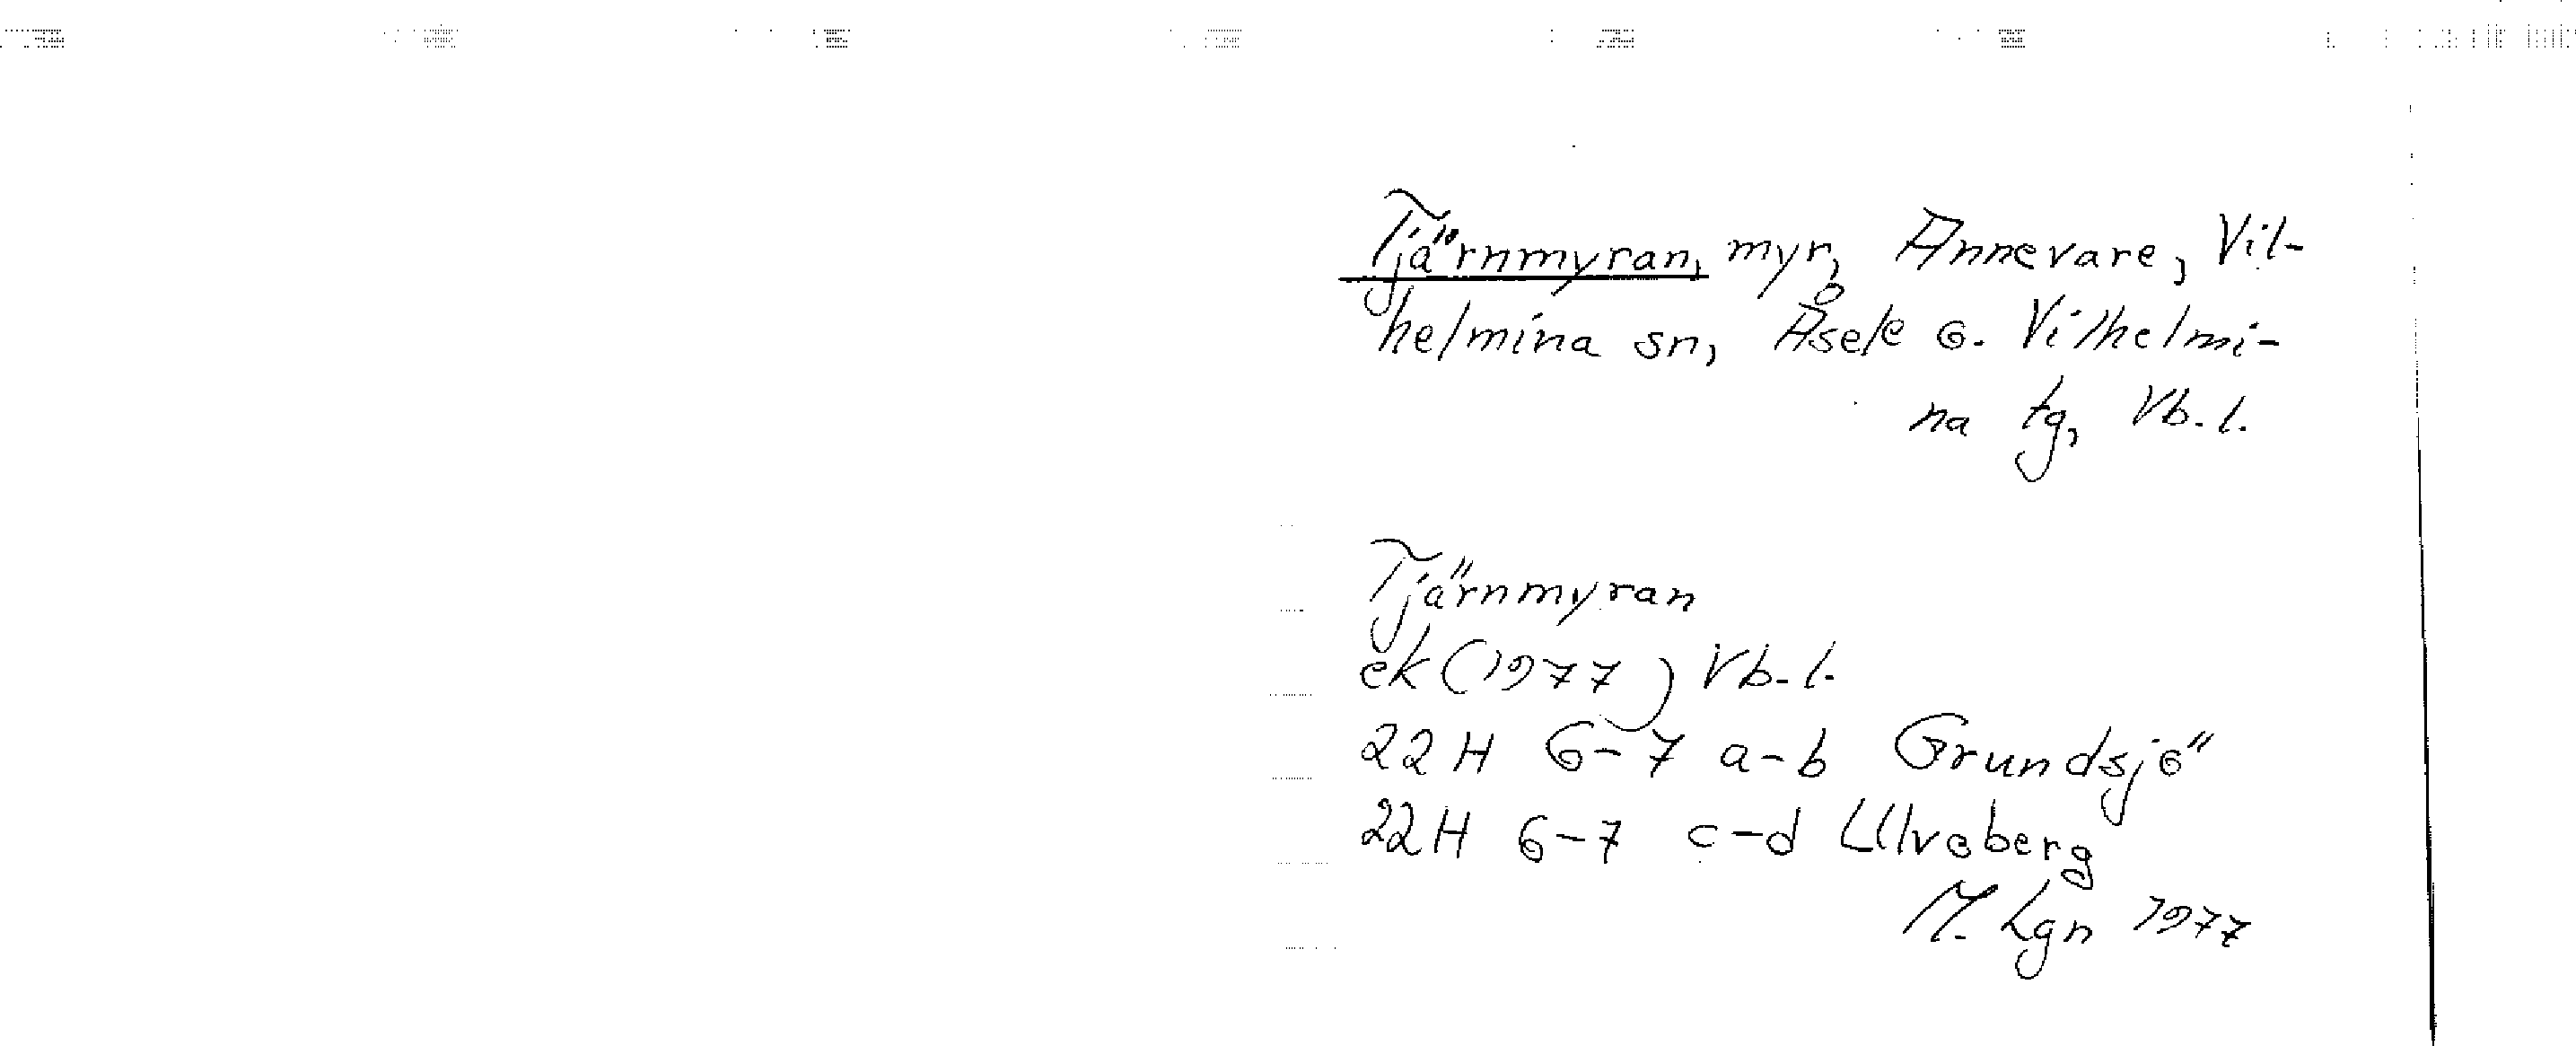 Tjärnmyran, myr, Annevare, Vil-
helmina sn, Åsele o. Vilhelmi-
na tg, Vb. l.
Tjärnmyran
ek (1977) Vb. l.
22 H 6-7 a-b Grundsjö
22 H 6-7 c-d Ulvoberg
M. Lgn 1977